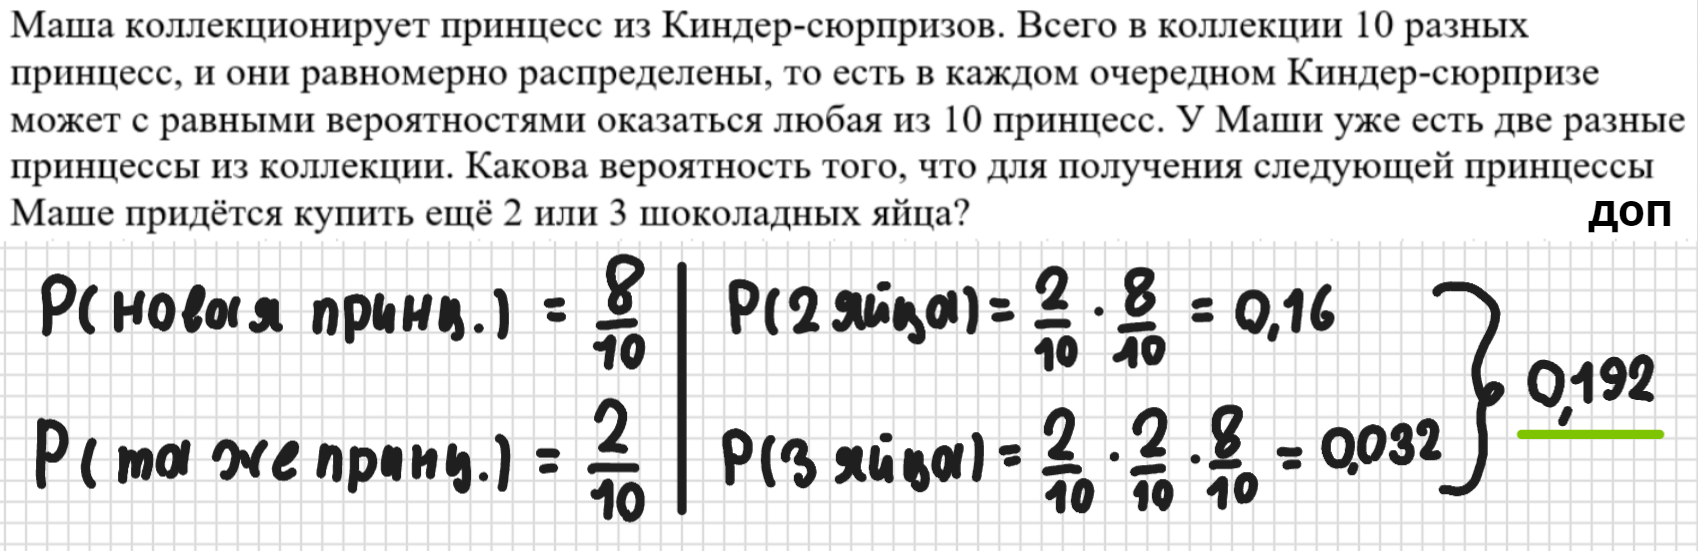 Маша коллекционирует принцесс из Киндер-сюрпризов. Всего в коллекции 10 разных
принцесс, и они равномерно распределены, то есть в каждом очередном Киндер-сюрпризе
может с равными вероятностями оказаться любая из 10 принцесс. У Маши уже есть две разные
принцессы из коллекции. Какова вероятность того, что для получения следующей принцессы
Маше придётся купить ещё 2 или 3 шоколадных яйца?
доп
P(новая принц.) = 8/10
P(та же принц.) = 2/10
P(2 яйца) = 2/10 · 8/10 = 0,16
P(3 яйца) = 2/10 · 2/10 · 8/10 = 0,032
0,192